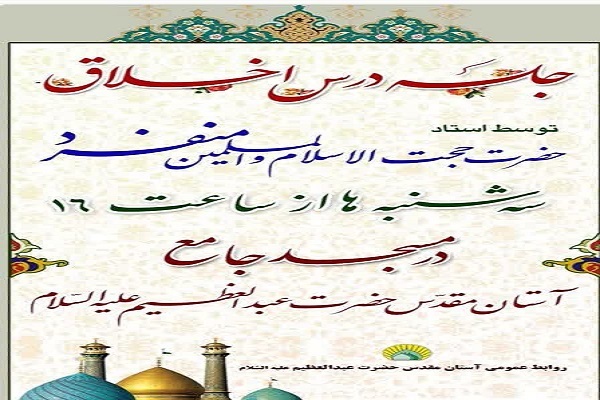 جلسه درس اخلاق
توسط استاد
حضرت حجت الاسلام والمسلمین منفرد
سه شنبه ها از ساعت ۱۶
در مسجد جامع
آستان مقدس حضرت عبدالعظیم علیه السلام
روابط عمومی آستان مقدس حضرت عبدالعظیم علیه السلام